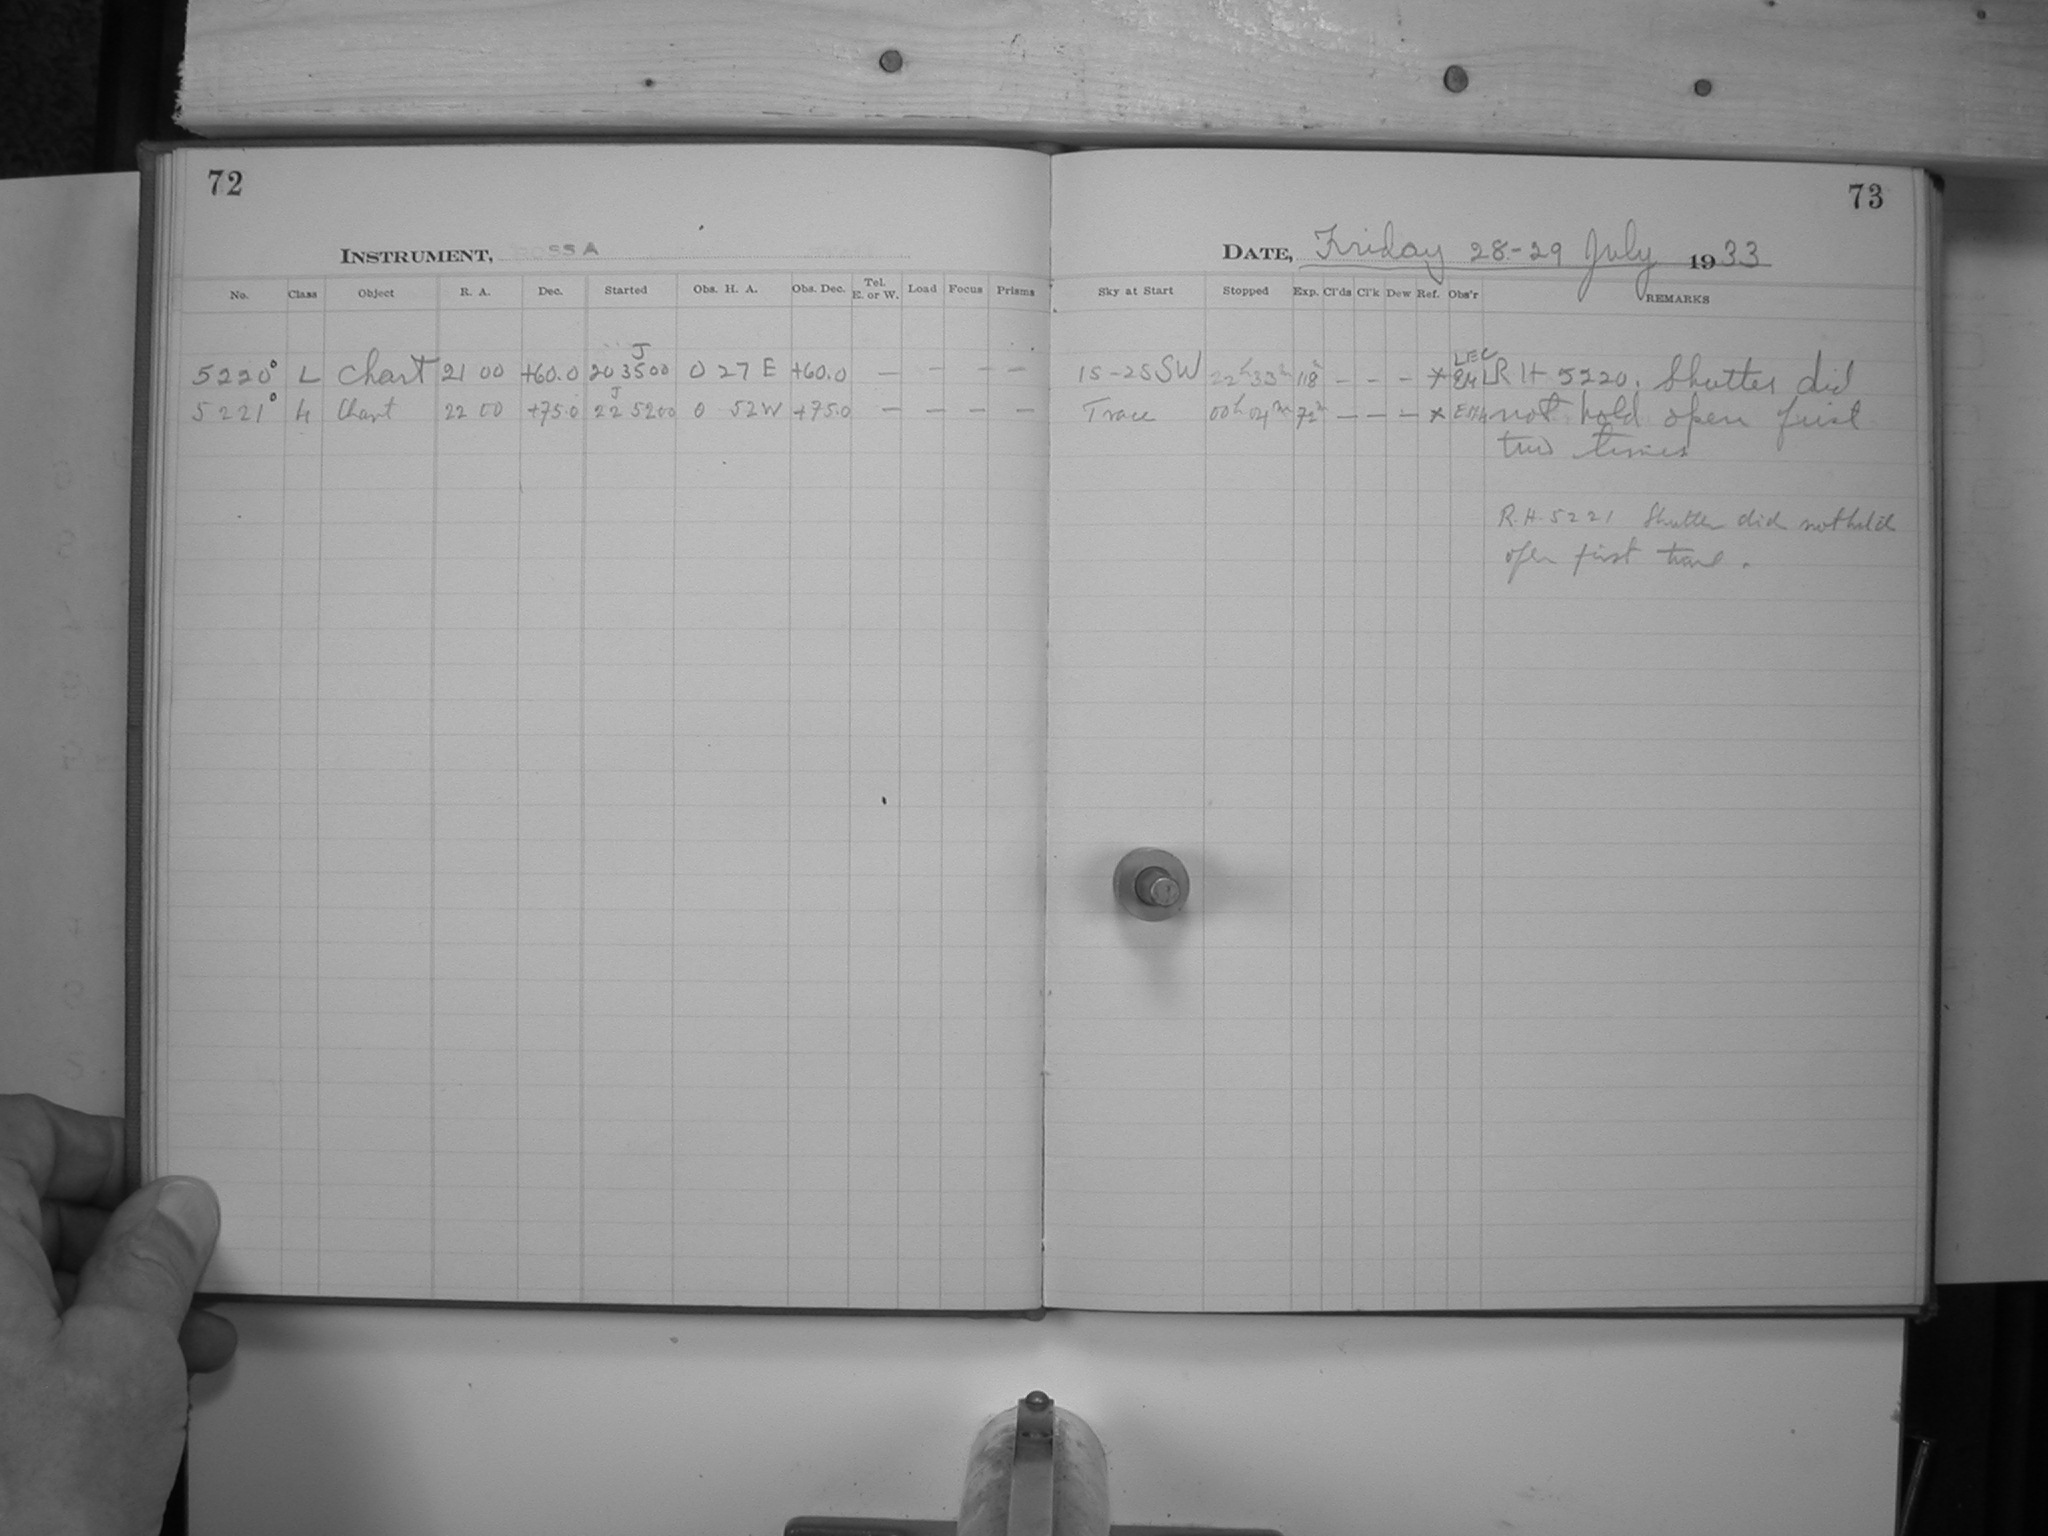 72
INSTRUMENT, ROSS A
No. Class Object R. A. Dec. Started Obs. H. A. Obs. Dec. Tel. E. or W. Load Focus Prisms
J
5220° L Chart 21 00 +60.0 20 35 00 0 27 E +60.0 — — — —
J
5221° L Chart 22 00 +75.0 22 52 00 0 52 W +75.0 — — — —
73
DATE, Friday 28-29 July 1933
Sky at Start Stopped Exp. Cl'ds Cl'k Dew Ref. Obs'r REMARKS
15-25 SW 22h 33m 118m — — — * LEC EHL RH 5220. Shutter did
Trace 00h 04m 72m — — — * EHL not hold open first
two times
R.H. 5221 Shutter did not hold
open first time.